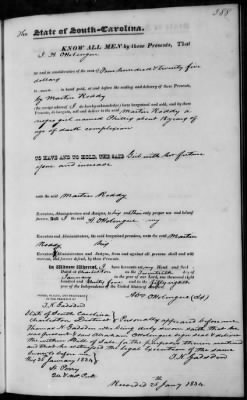 288
The State of South-Carolina.
KNOW ALL MEN by these Presents, That
I H Ottolengui
for and in consideration of the sum of Four hundred & twenty five
dollars
to me in hand paid, at and before the sealing and delivery of these Presents,
by Martin Roddy
the receipt whereof I do hereby acknowledge) have bargained and sold, and by these
Presents, do bargain, sell and deliver to the said Martin Roddy a
negro girl named Phillis about 18 years of
age of dark complexion
TO HAVE AND TO HOLD, THE SAID Girl with her future
issue and increase
unto the said Martin Roddy
Executors, Administrators and Assigns, to his and their only proper use and behoof
forever. And I the said
Executors, Administrators and Assigns, the said bargained premises, unto the said Martin
Roddy his
Executors, Administrators and Assigns, from and against all persons shall and will
and forever defend, by these Presents.
In Witness Whereof, I have hereunto set my Hand and Seal
Dated at Charleston on the
January in the year of our Lord one thousand eight
hundred and thirty four and in the fifty eighth year of
the Independence of the United States of America.
SIGNED, SEALED, AND DELIVERED
IN THE PRESENCE OF
T. H. Gadsden
State of South Carolina
Charleston District
Personally appeared before me
Thomas H Gadsden who being duly sworn saith that he
was present & saw
the within Bill of Sale for the purposes therein mentioned
and that he witnessed the legal Execution of the same
Sworn to before me
this 25 January 1834
T. H. Gadsden
Recorded 25 Jany 1834